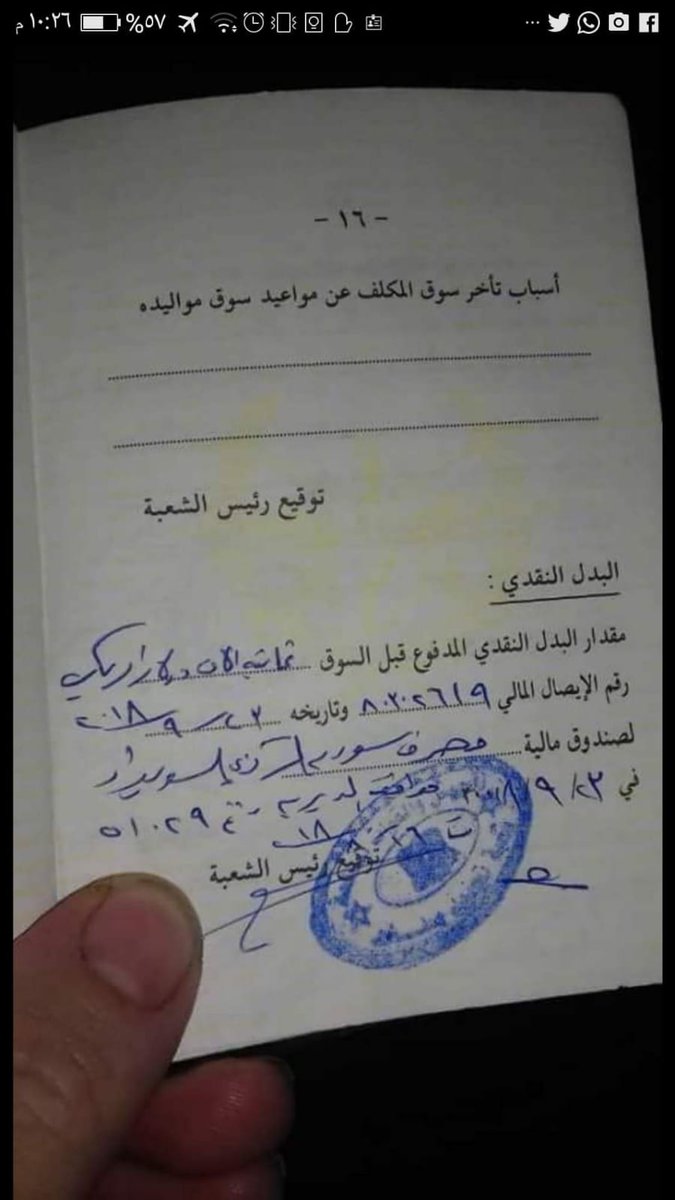 ١٠:٢٦ م ٥٧%
- ١٦ -
أسباب تأخر سوق المكلف عن مواعيد سوق مواليده
توقيع رئيس الشعبة
البدل النقدي :
مقدار البدل النقدي المدفوع قبل السوق ثمانية الاف دولار امريكي
رقم الإيصال المالي ٨٠٣٠٢٦١٩ وتاريخه ٢٣/٩/٢٠١٨
لصندوق مالية مصرف سورية المركزي السويداء
في ٢٣/٩/٢٠١٨ رقم ٥١٠٢٩
ت ١٦/٨/١٨
توقيع رئيس الشعبة